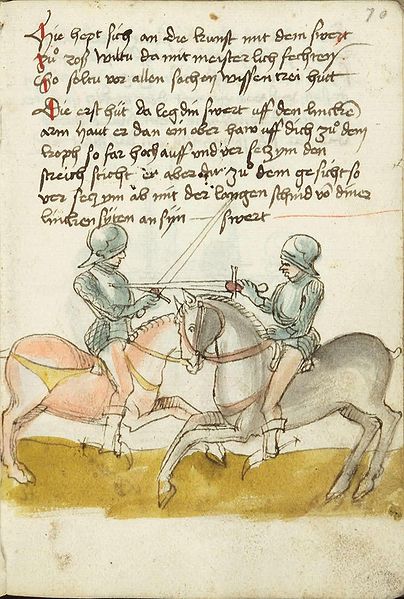 70
Hie hept sich an die kunst mit dem swert
zů roß wiltu da mit meisterlich fechten
So soltu vor allen sachen wissen trei hůtt
Die erst hůt da leg din swert uff den lincken
arm haut er dan ein ober haw uff dich zů dem
kopff so far hoch auff und ver secz ym den
streich sticht er aber dir zů dem gesicht so
ver secz ym ab mit der langen schnid vō diner
lincken syten an syn swert